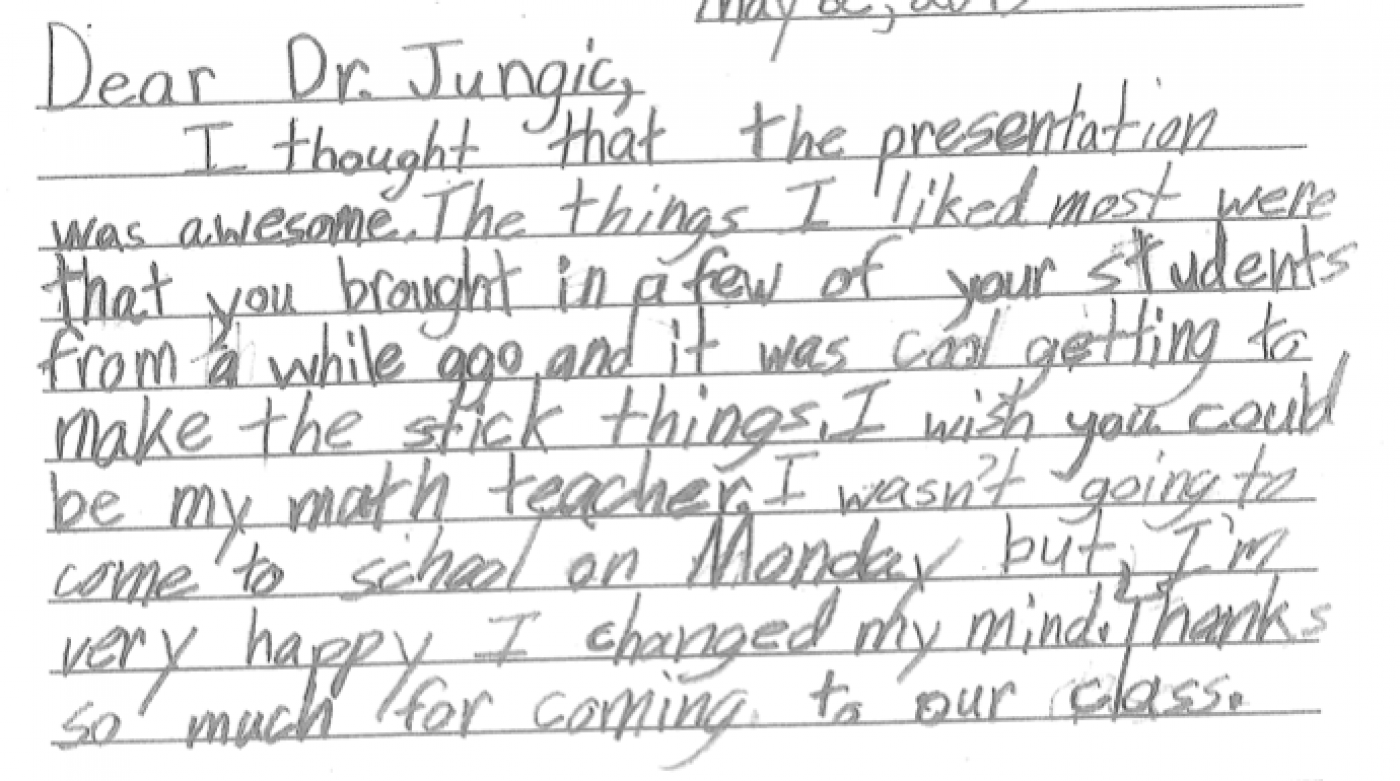 May
Dear Dr. Jungic,
I thought that the presentation
was awesome. The things I liked most were
that you brought in a few of your students
from a while ago and it was cool getting to
make the stick things. I wish you could
be my math teacher. I wasn't going to
come to school on Monday but, I'm
very happy I changed my mind. Thanks
so much for coming to our class.